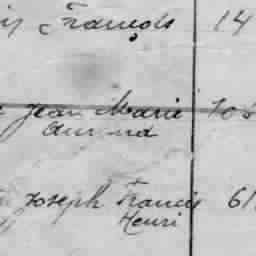 François 14
Jean Marie 105
Armand
Joseph Francis 61
Henri